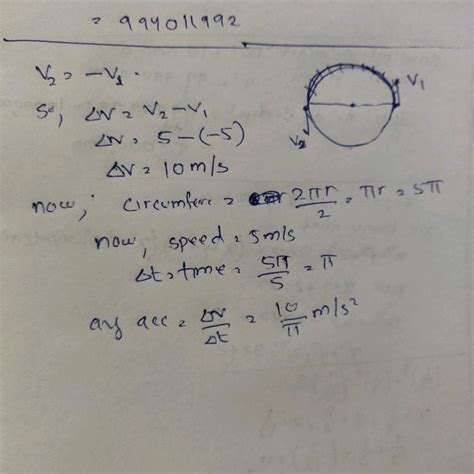 = 994011992
V₂ = -V₁ .
So, ΔV = V₂ - V₁
ΔV = 5 - (-5)
ΔV = 10 m/s
now, circumfere = 2πr/2 = πr = 5π
now, speed = 5m/s
Δt = time = 5π/5 = π
avg acc = Δv/Δt = 10/π m/s²
V₁
V₂